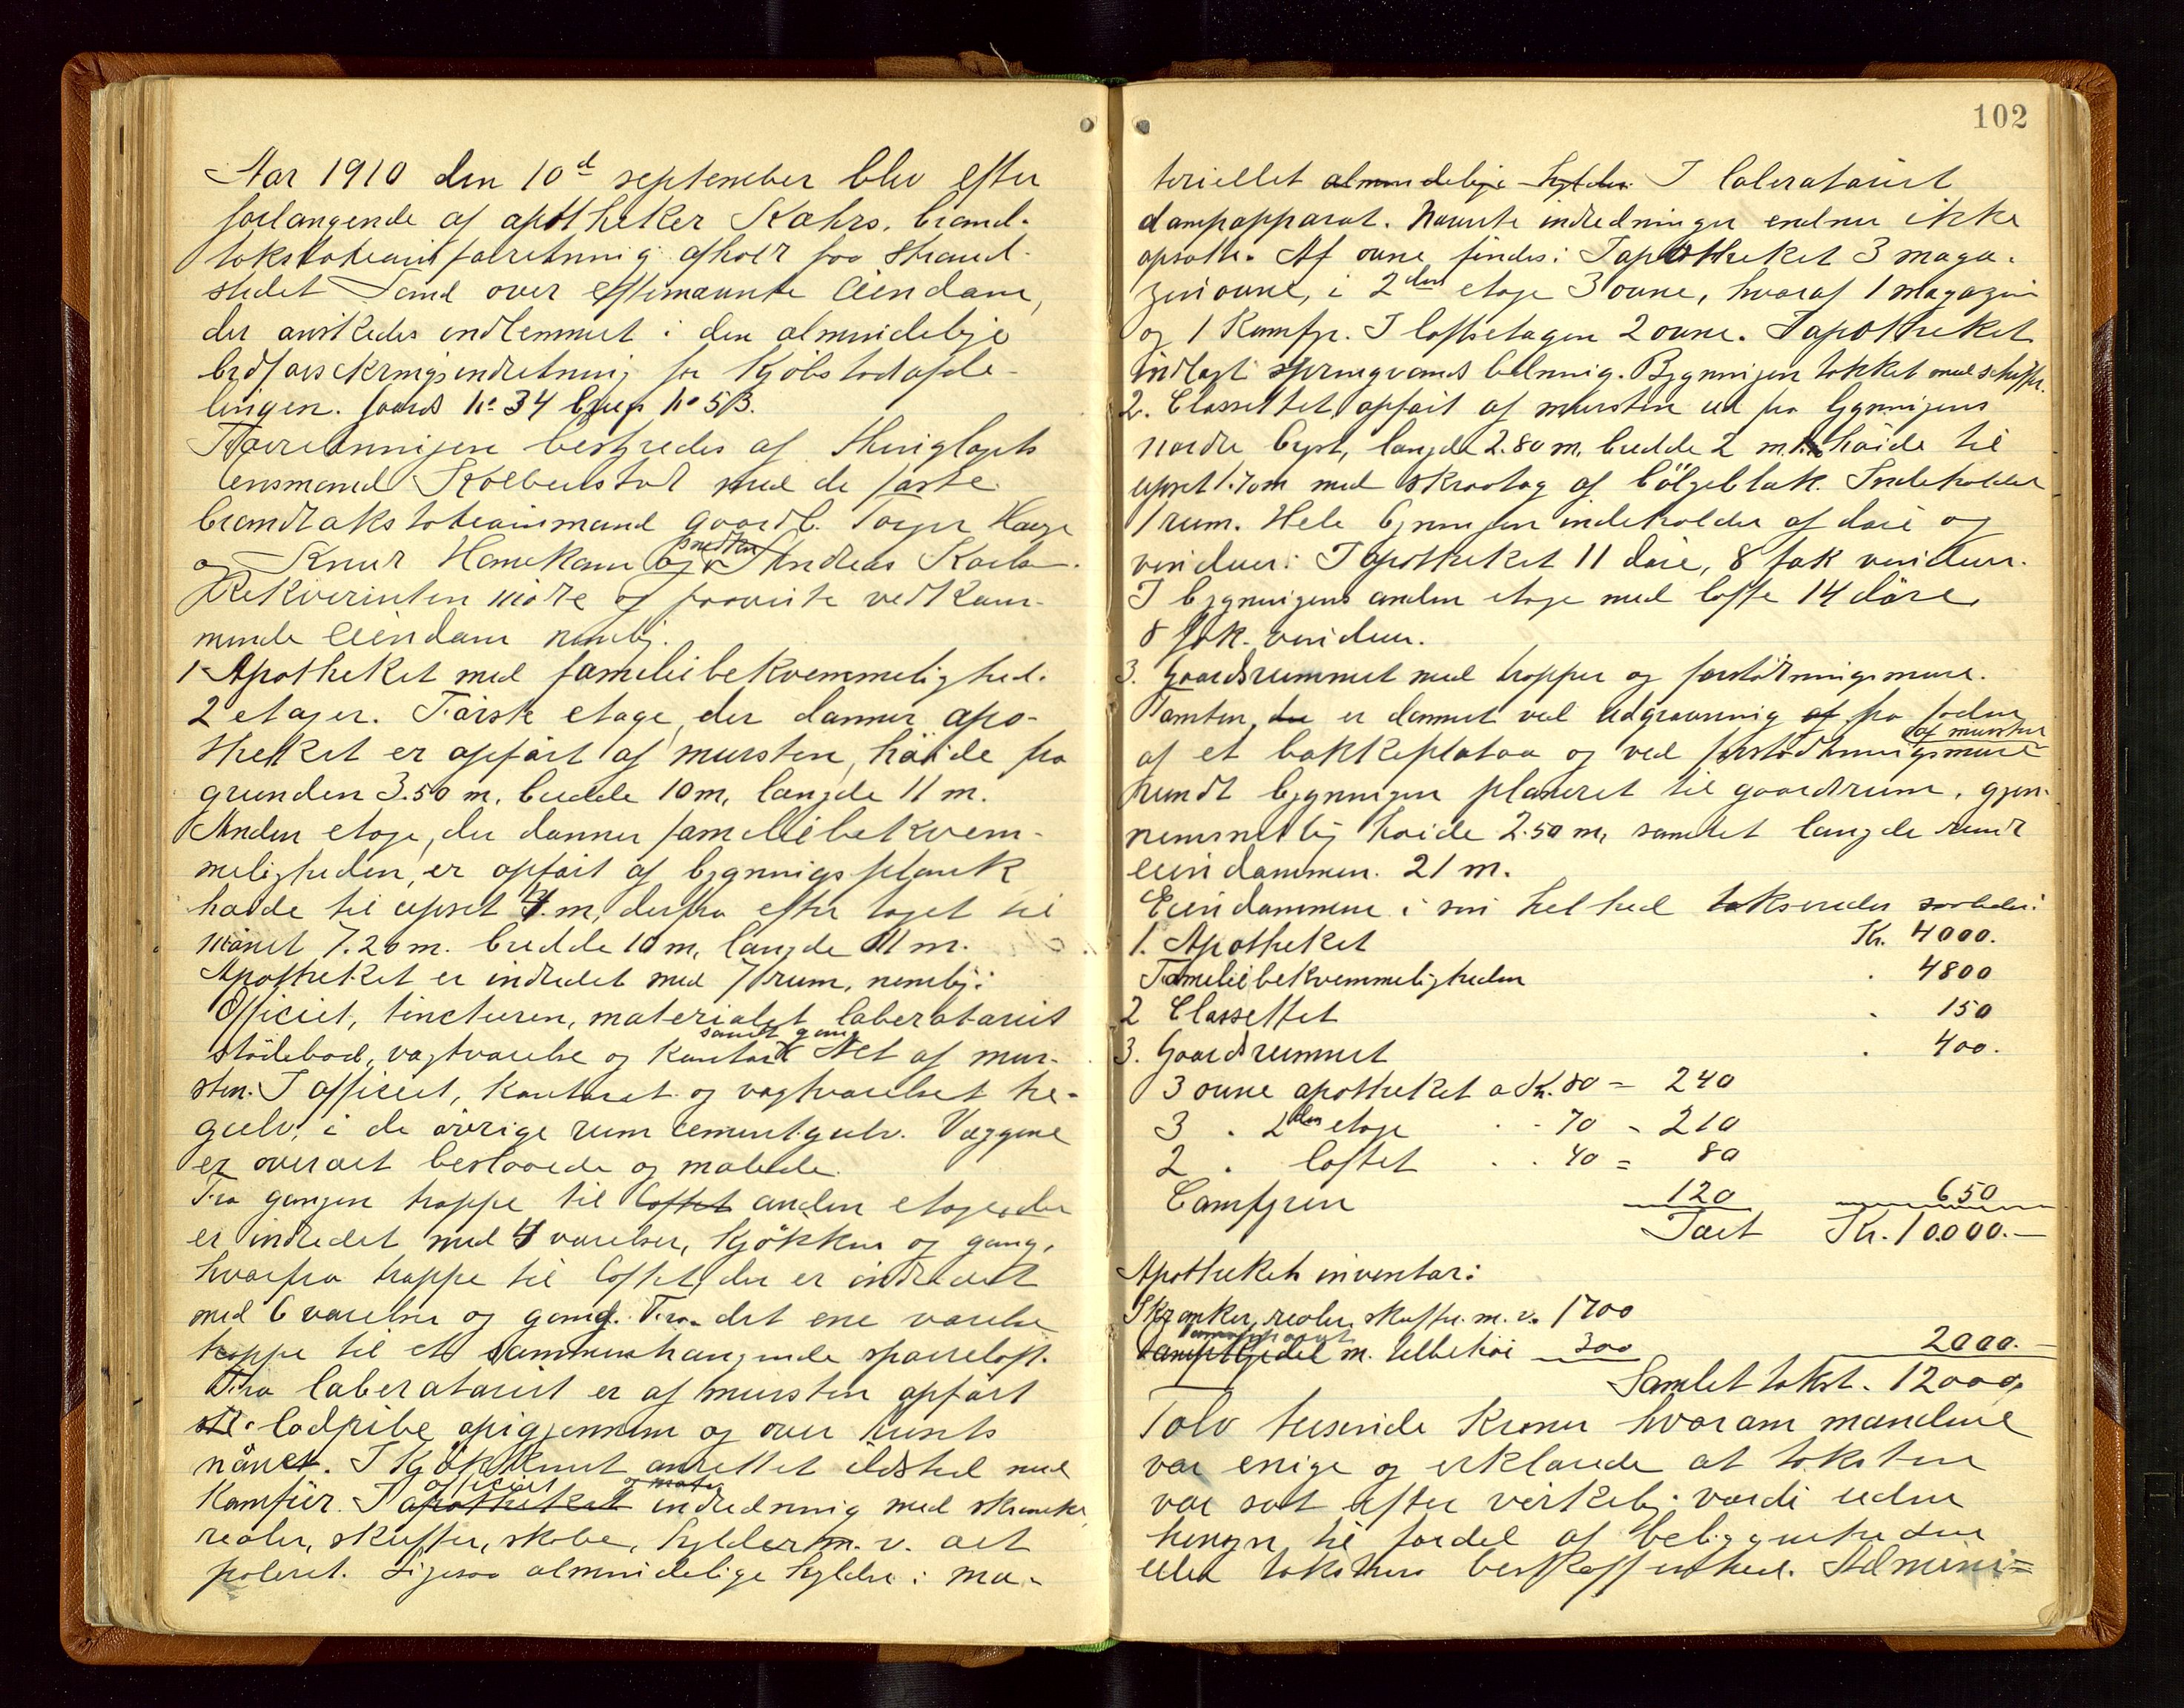 Aar 1910 den 10d september blev efter
forlangende af apotheker Kahrs, brand-
takstationsforretning afholt paa strand-
stedet Sand over efternævnte eiendom,
der ønskedes indlemmet i den almindelige
brdforsikringsindretning for Kjöbstadafde-
lingen. Gaards No 34 brugs No 5B.
Forretningen bestyredes af thinglagets
lensmand Kolbenstvedt med de faste
brandtakstationsmænd gaardb. Torger
og Knud Hamekam og snedker Andreas
Rekvirenten mötte og paaviste vedkom-
mende eiendom nemlig.
1 Apotheket med familiebekvemmelighed.
2 etager. Förste etage, der danner apo-
theket er opfört af mursten, höide fra
grunden 3.50 m, bredde 10 m, længde 11 m.
Anden etage, der danner familiebekvem-
meligheden, er opfört af bygningsplank
höide til upset 4. m, derfra efter taget til
mönet 7.20 m. bredde 10 m, længde 11 m.
Apotheket er indredet med 7 rum, nemlig:
Officiet, tincturen, materialet laboratoriet
stödebod, vagtværelse og kontor samt gang Alt af mur-
sten. I officiet, kontoret og vagtværelset tre-
gulv, i de övrige rum cementgulv. Væggene
er overalt beslaaede og malede.
Fra gangen trappe til loftet anden etage, der
er indredet med 4 værelser, kjökken og gang,
hvorfra trappe til loftet, der er indredet
med 6 værelser og gang. Fra det ene værelse
trappe til et sammenhængende sparreloft.
Fra laboratoriet er af mursten opfört
lodpibe opigjennem og over husets
mönet. I kjökkenet ansettet ildsted med
Kamfür. I apotheket officiet og mater indredning med skranke,
reoler, skuffer, skabe, hylder m. v. alt
poleret. Ligesaa almindelige hylder i ma-
102
teriellet almindelige hylder. I laboratoriet
dampapparat. Nævnte indredninger endnu ikke
opsatte. Af ovne findes: I apotheket 3 maga-
zinovne, i 2den etage 3 ovne, hvoraf 1 magazin
og 1 Kamfyr. I loftsetagen 2 ovne. I apotheket
indlagt springvands ledning. Bygningen tækket med skiffer.
2. Closettet opfört af mursten ud fra bygningens
nordre bryst, længde 2.80 m, bredde 2 m, höide til
upset 1.70 m med skraatag af bölgeblik. Indeholder
1 rum. Hele bygningen indeholder af döre og
vinduer: I apotheket 11 döre, 8 fak vinduer.
I bygningens anden etage med lofte 14 döre,
8 fak. vinduer.
3. Gaardsrummet med trapper og forstötningsmure.
Tomten, der er dannet ved udgravning af fra foden
af et bakkeplataa og ved forstötningsmure af mursten
rundt bygningen planeret til gaardsrum, gjen-
nemsnitlig höide 2.50 m, samlet længde rundt
eiendommen. 21 m.
Eiendommene i sin helhed takseredes saaledes:
1. Apotheket Kr. 4000.
Familiebekvemmeligheden . 4800
2 Closettet . 150
3. Gaardsrummet . 400.
3 ovne apotheket a Kr. 80 = 240
3 . 2den etage . . 70 = 210
2 . loftet . . 40 = 80
Camfyren 120 650
Tilsammen Kr. 10.000.-
Apothekets inventar:
Skranker, reoler, skuffer m. v. 1700
Dampkjedel Dampapparat m. tilbehör 300 2000.-
Samlet takst. 12000,
Tolv tusinde kroner hvorom mændene
var enige og erklærede at taksten
var sat efter virkelig værdi uden
hensyn til fordel af beliggenheden
eller takstens beskaffenhed. Admini=